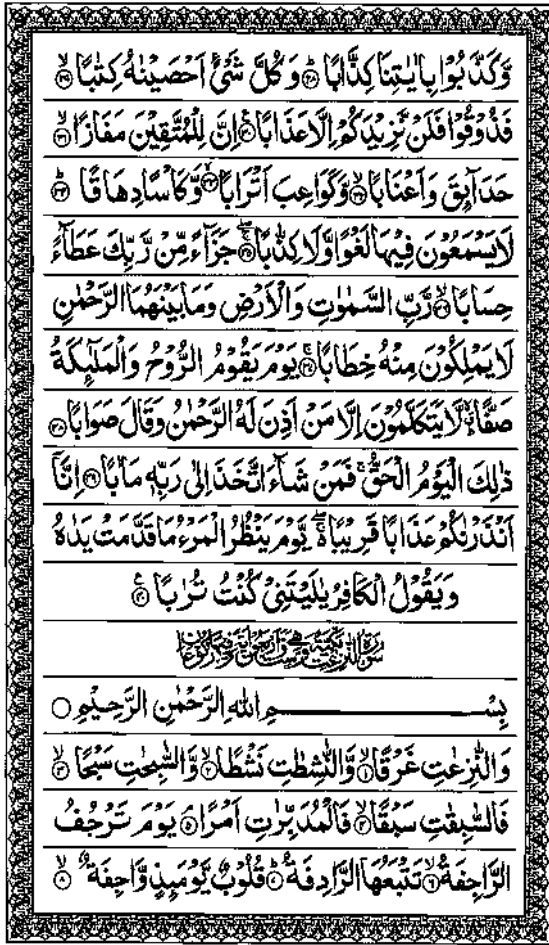 وَّكَذَّبُوْا بِاٰيٰتِنَا كِذَّابًا ؕ﴿۲۸﴾ وَكُلَّ شَیْءٍ اَحْصَيْنٰهُ كِتٰبًا ۙ﴿۲۹﴾
فَذُوْقُوْا فَلَنْ نَّزِيْدَكُمْ اِلَّا عَذَابًا ﴿۳۰﴾ اِنَّ لِلْمُتَّقِيْنَ مَفَازًا ۙ﴿۳۱﴾
حَدَآئِقَ وَاَعْنَابًا ۙ﴿۳۲﴾ وَّكَوَاعِبَ اَتْرَابًا ۙ﴿۳۳﴾ وَّكَاْسًا دِهَاقًا ؕ﴿۳۴﴾
لَا يَسْمَعُوْنَ فِيْهَا لَغْوًا وَّلَا كِذّٰبًا ۚ﴿۳۵﴾ جَزَآءً مِّنْ رَّبِّكَ عَطَآءً
حِسَابًا ۙ﴿۳۶﴾ رَّبِّ السَّمٰوٰتِ وَالْاَرْضِ وَمَا بَيْنَهُمَا الرَّحْمٰنِ
لَا يَمْلِكُوْنَ مِنْهُ خِطَابًا ۚ﴿۳۷﴾ يَوْمَ يَقُوْمُ الرُّوْحُ وَالْمَلٰٓئِكَةُ
صَفًّا ۙۗ لَّا يَتَكَلَّمُوْنَ اِلَّا مَنْ اَذِنَ لَهُ الرَّحْمٰنُ وَقَالَ صَوَابًا ﴿۳۸﴾
ذٰلِكَ الْيَوْمُ الْحَقُّ ۚ فَمَنْ شَآءَ اتَّخَذَ اِلٰى رَبِّهٖ مَاٰبًا ﴿۳۹﴾ اِنَّآ
اَنْذَرْنٰكُمْ عَذَابًا قَرِيْبًا ۚۖ يَّوْمَ يَنْظُرُ الْمَرْءُ مَا قَدَّمَتْ يَدٰهُ
وَيَقُوْلُ الْكَافِرُ يٰلَيْتَنِیْ كُنْتُ تُرٰبًا ﴿۴۰﴾
سُوْرَةُ النّٰزِعٰتِ مَكِّيَّةٌ وَّهِیَ سِتٌّ وَّاَرْبَعُوْنَ اٰيَةً وَّفِيْهَا رُكُوْعَانِ
بِسْمِ اللهِ الرَّحْمٰنِ الرَّحِيْمِ ○
وَالنّٰزِعٰتِ غَرْقًا ۙ﴿۱﴾ وَّالنّٰشِطٰتِ نَشْطًا ۙ﴿۲﴾ وَّالسّٰبِحٰتِ سَبْحًا ۙ﴿۳﴾
فَالسّٰبِقٰتِ سَبْقًا ۙ﴿۴﴾ فَالْمُدَبِّرٰتِ اَمْرًا ۘ﴿۵﴾ يَوْمَ تَرْجُفُ
الرَّاجِفَةُ ۙ﴿۶﴾ تَتْبَعُهَا الرَّادِفَةُ ؕ﴿۷﴾ قُلُوْبٌ يَّوْمَئِذٍ وَّاجِفَةٌ ۙ﴿۸﴾